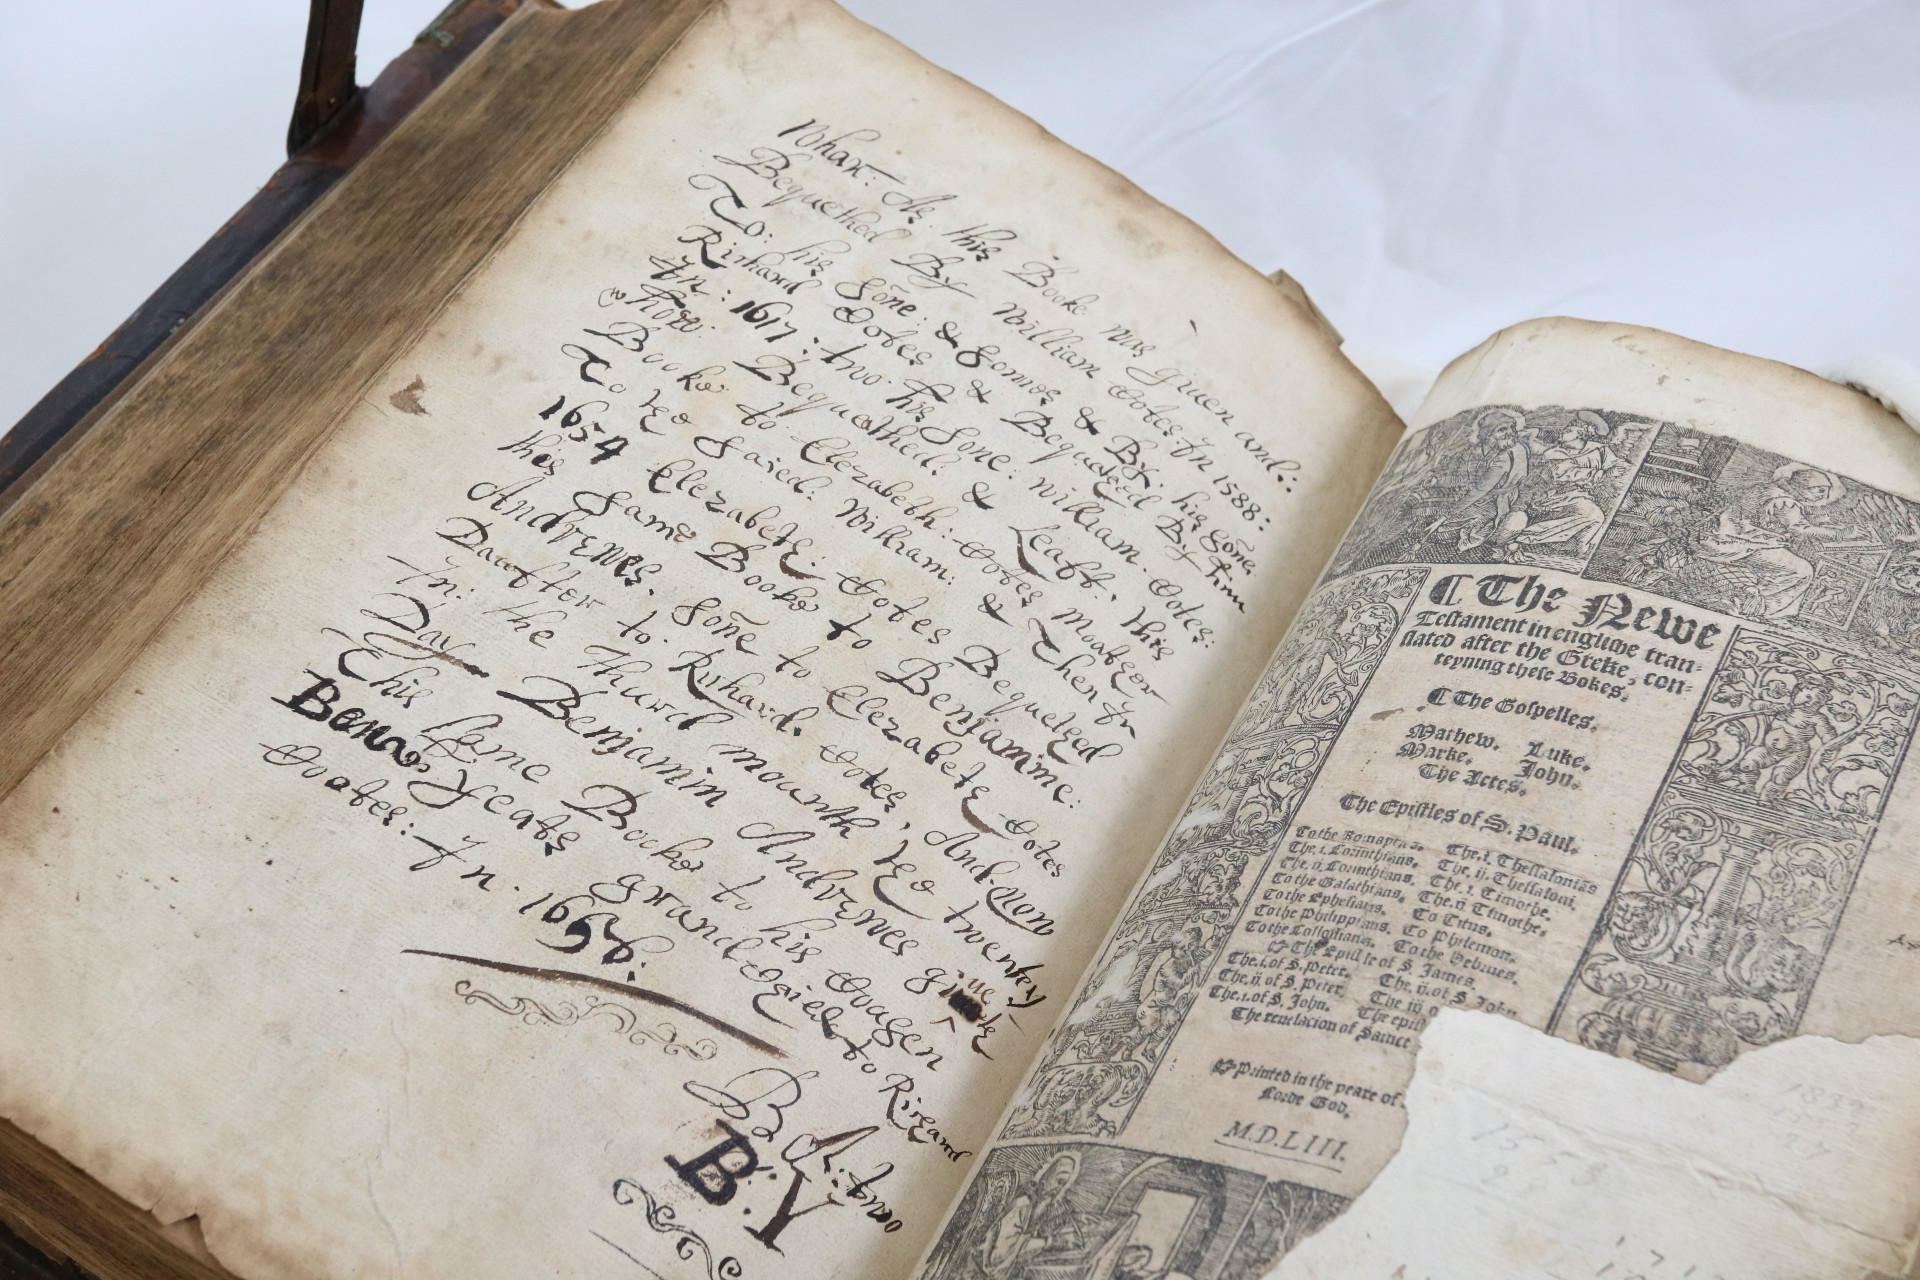 this Booke was giuen and:
Bequethed By William Ootes. In 1588:
To: his Sone: & Somes & By: his Sone.
Richard Ootes & Bequeted By him
In: 1617: two his Sone: William. Ootes:
whow: Bequathed: & Leaft. this
Booke to Elezabeth: Ootes Moather
To the Saied: William: & Then In
1654 Elezabeth: Ootes Bequeted
this Same Booke to Benjamine:
Andrewes. Sone to Elezabeth Ootes
Dawfter to. Richard. Ootes, And. Now
In: the Thurd mounth the twenty
Day Benjamin Andrewes giue
This same Booke to his Ovagen
grand to Richard
Ovates: In.
B:Y
¶ The Newe
Testament in englishe tran-
slated after the Greke, con-
teyning these Bokes.
¶ The Gospelles.
Mathew. Luke.
Marke. John.
The Actes.
The Epistles of S. Paul.
To the Romayns. The.i. Thessalonians
The.i. Corinthians. The.ij. Thessaloni.
The.ii. Corinthians. The.i. Timothe.
To the Galathians. The.ii Timothe.
To the Ephesians. To Titus.
To the Philippians. To Philemon.
To the Collossians. To the Hebrues.
The Epistle of S. James.
The.i. of S. Peter. The.ii. of S. John
The.ii. of S. Peter. The iii o
The.i. of S. John. The epist
The reuelacion of Sainct
Printed in the yeare of.
Lorde God.
M.D.LIII.
1553